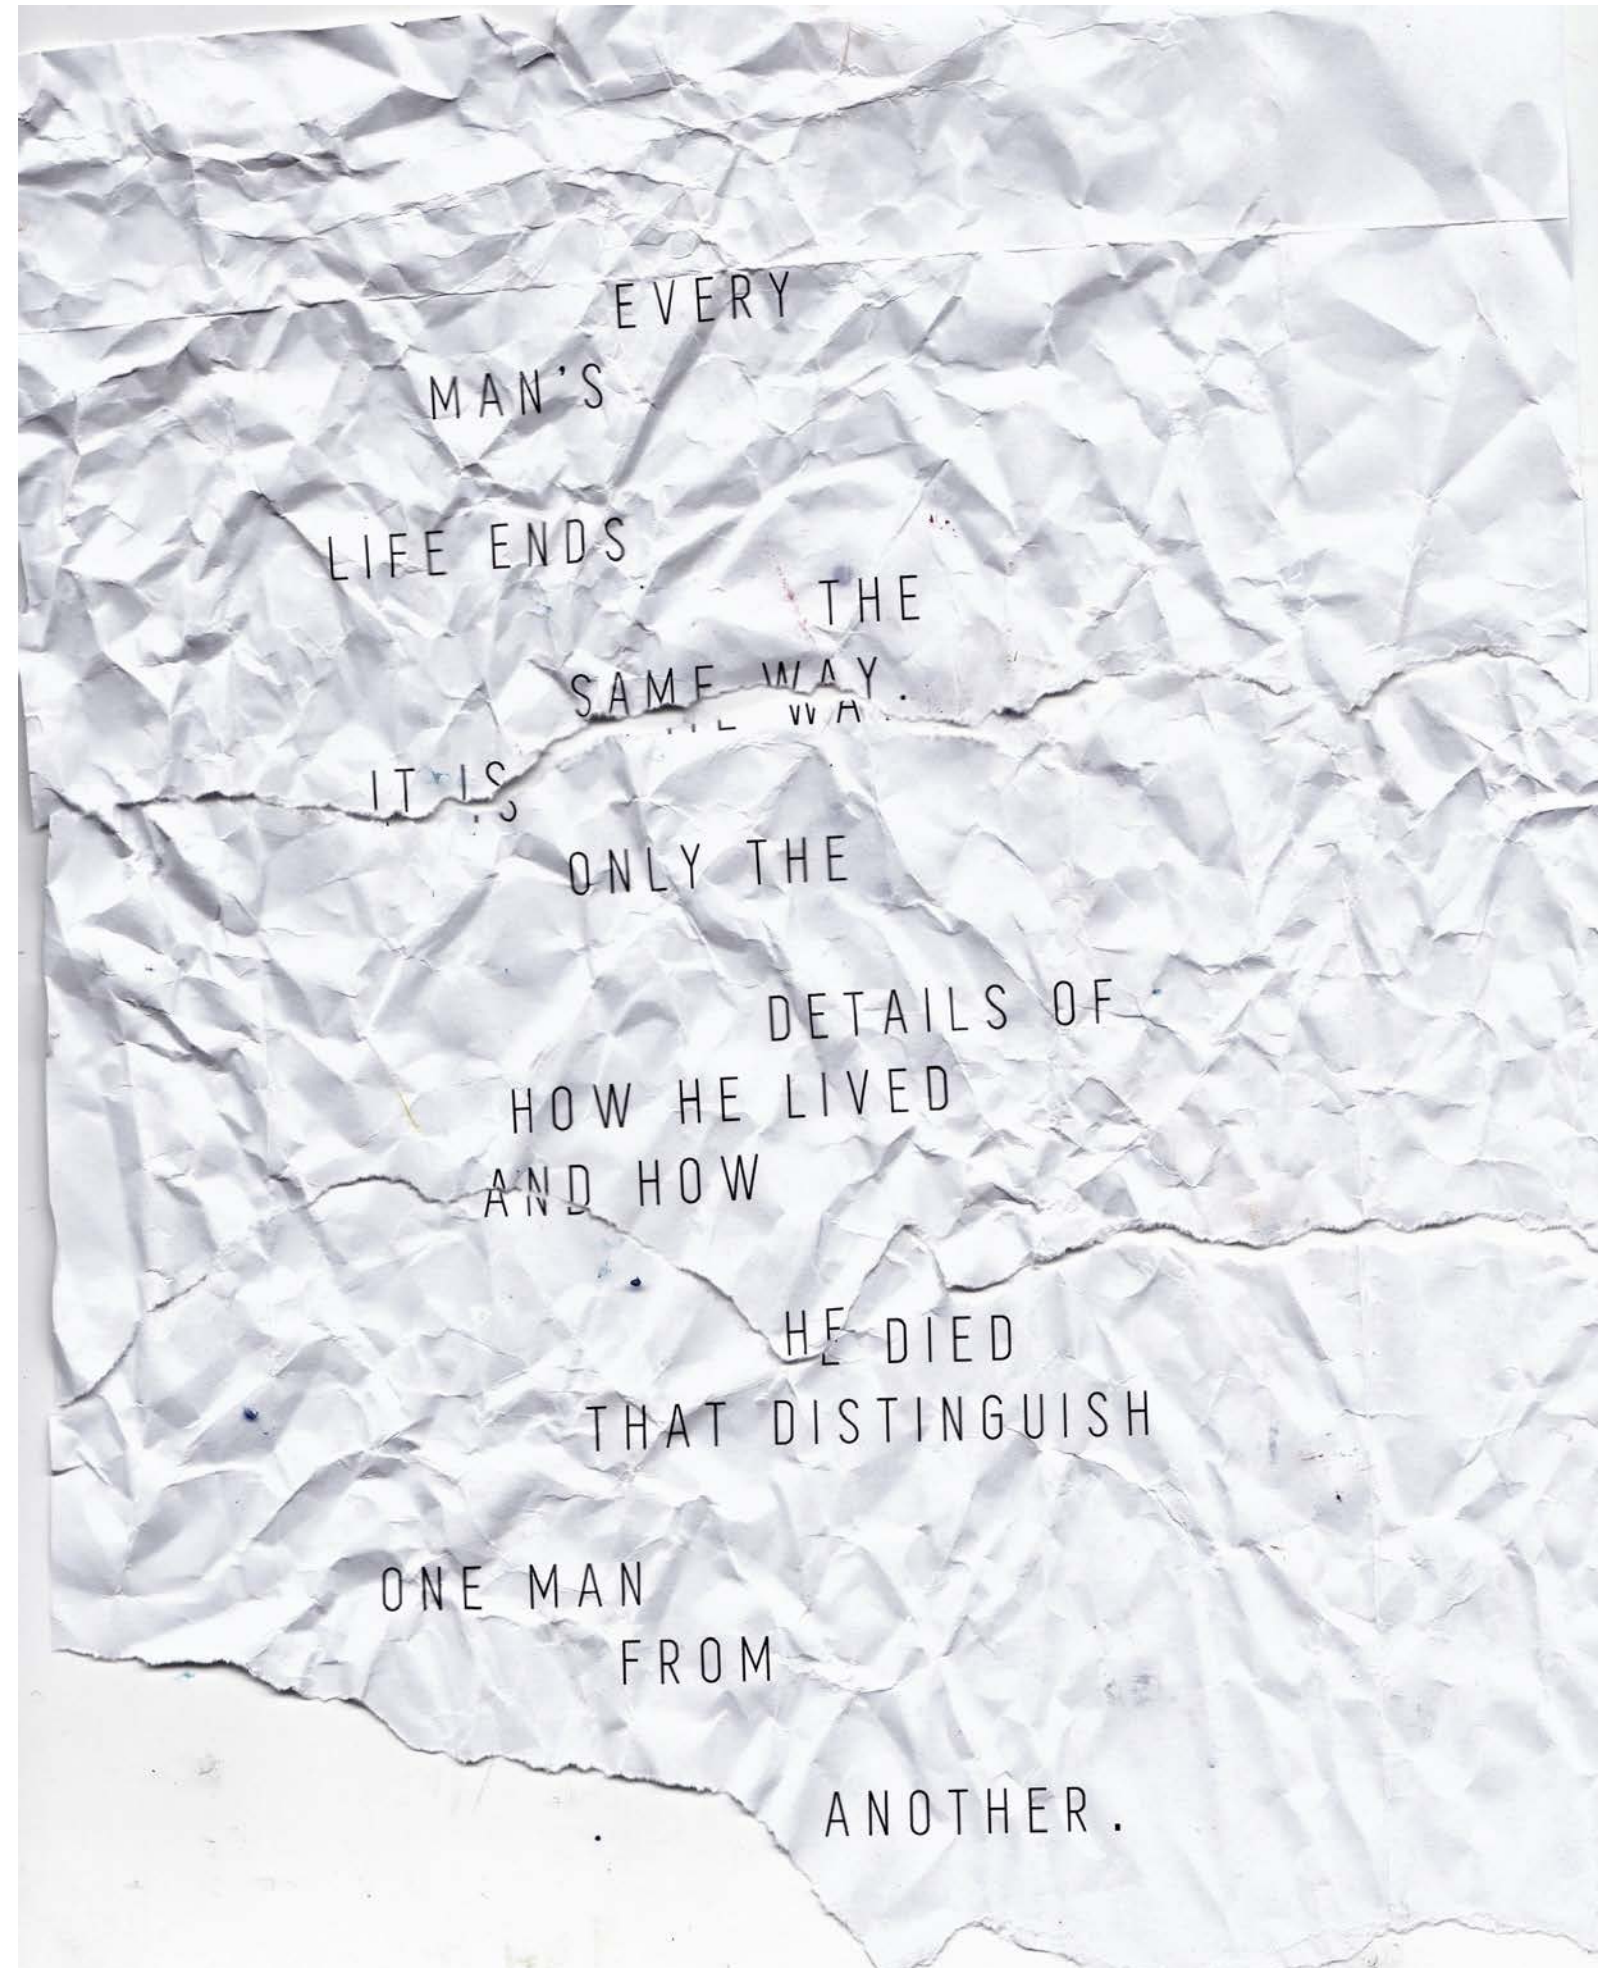 EVERY
MAN'S
LIFE ENDS
THE
SAME WAY.
IT IS
ONLY THE
DETAILS OF
HOW HE LIVED
AND HOW
HE DIED
THAT DISTINGUISH
ONE MAN
FROM
ANOTHER.